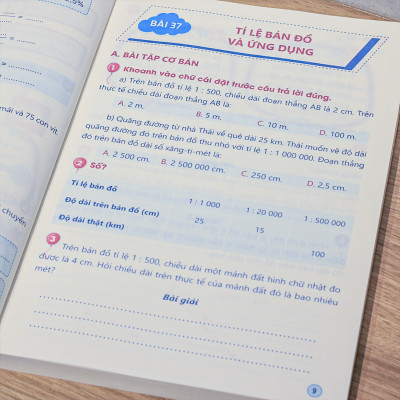 BÀI 37
TỈ LỆ BẢN ĐỒ
VÀ ỨNG DỤNG
A. BÀI TẬP CƠ BẢN
1 Khoanh vào chữ cái đặt trước câu trả lời đúng.
a) Trên bản đồ tỉ lệ 1 : 500, chiều dài đoạn thẳng AB là 2 cm. Trên
thực tế chiều dài đoạn thẳng AB là:
A. 2 m. B. 5 m. C. 10 m. D. 100 m.
b) Quãng đường từ nhà Thái về quê dài 25 km. Thái muốn vẽ độ dài
quãng đường đó trên bản đồ thu nhỏ với tỉ lệ 1 : 1 000 000. Đoạn thẳng
đó trên bản đồ dài số xăng-ti-mét là:
A. 2 500 cm. B. 2 500 000 cm. C. 250 cm. D. 2,5 cm.
2 Số?
Tỉ lệ bản đồ 1 : 1 000 1 : 20 000 1 : 500 000
Độ dài trên bản đồ (cm) 25 15
Độ dài thật (km) 100
3 Trên bản đồ tỉ lệ 1 : 500, chiều dài một mảnh đất hình chữ nhật đo
được là 4 cm. Hỏi chiều dài trên thực tế của mảnh đất đó là bao nhiêu
mét?
Bài giải
9
mái và 75 con vịt.
chuyển